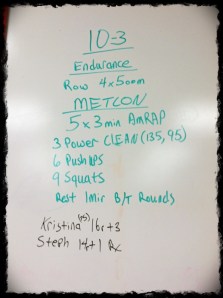 10-3
Endurance
Row 4x500m
METCON
5x3min AmRAP
3 Power CLEAN (135, 95)
6 PushUps
9 Squats
Rest 1min B/T Rounds
Kristina (75) 16r+3
Steph +1 Rx